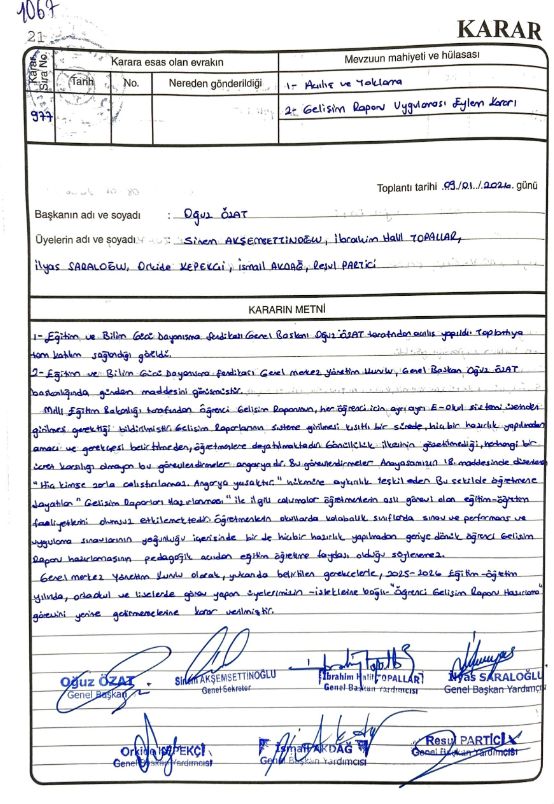 1067
21
KARAR
Karar Sıra No.
Karara esas olan evrakın
Mevzuun mahiyeti ve hülasası
Tarih
No.
Nereden gönderildiği
977
1- Açılış ve Yoklama
2- Gelişim Raporu Uygulaması Eylem Kararı
Toplantı tarihi .09./01../2026. günü
Başkanın adı ve soyadı : Oğuz ÖZAT
Üyelerin adı ve soyadı : Sinem AKŞEMSETTİNOĞLU, İbrahim Halil TOPALLAR,
İlyas SARALOĞLU, Orkide KEPEKÇİ, İsmail AKDAĞ, Resul PARTİCİ
KARARIN METNİ
1- Eğitim ve Bilim Gücü Dayanışma Sendikası Genel Başkanı Oğuz ÖZAT tarafından açılış yapıldı. Toplantıya
tam katılım sağlandığı görüldü.
2- Eğitim ve Bilim Gücü Dayanışma Sendikası Genel Merkez Yönetim Kurulu, Genel Başkan Oğuz ÖZAT
başkanlığında gündem maddesini görüşmüştür.
Milli Eğitim Bakanlığı tarafından Öğrenci Gelişim Raporunun, her öğrenci için ayrı ayrı E-Okul sistemi üzerinden
girilmesi gerektiği bildirilmiştir. Gelişim Raporlarının sisteme girilmesi kısıtlı bir sürede, hiçbir hazırlık yapılmadan
amacı ve gerekçesi belirtilmeden, öğretmenlere dayatılmaktadır. Gönüllülük ilkesinin gözetilmediği, herhangi bir
ücret karşılığı olmayan bu görevlendirmeler angaryadır. Bu görevlendirmeler Anayasamızın 18. maddesinde düzenlenen
"Hiç kimse zorla çalıştırılamaz. Angarya yasaktır." hükmüne aykırılık teşkil eder. Bu şekilde öğretmene
dayatılan "Gelişim Raporları Hazırlanması" ile ilgili çalışmalar öğretmenlerin asli görevi olan eğitim-öğretim
faaliyetlerini olumsuz etkilemektedir. Öğretmenlerin okullarda kalabalık sınıflarda sınav ve performans ve
uygulama sınavlarının yoğunluğu içerisinde bir de hiçbir hazırlık yapılmadan geriye dönük öğrenci Gelişim
Raporu hazırlamasının pedagojik açıdan eğitim öğretime faydası olduğu söylenemez.
Genel merkez yönetim kurulu olarak, yukarıda belirtilen gerekçelerle, 2025-2026 Eğitim-Öğretim
yılında, ortaokul ve liselerde görev yapan üyelerimizin -isteklerine bağlı- "Öğrenci Gelişim Raporu Hazırlama"
görevini yerine getirmemelerine karar verilmiştir.
Oğuz ÖZAT
Genel Başkan
Sinem AKŞEMSETTİNOĞLU
Genel Sekreter
İbrahim Halil TOPALLAR
Genel Başkan Yardımcısı
İlyas SARALOĞLU
Genel Başkan Yardımcısı
Orkide KEPEKÇİ
Genel Başkan Yardımcısı
İsmail AKDAĞ
Genel Başkan Yardımcısı
Resul PARTİCİ
Genel Başkan Yardımcısı